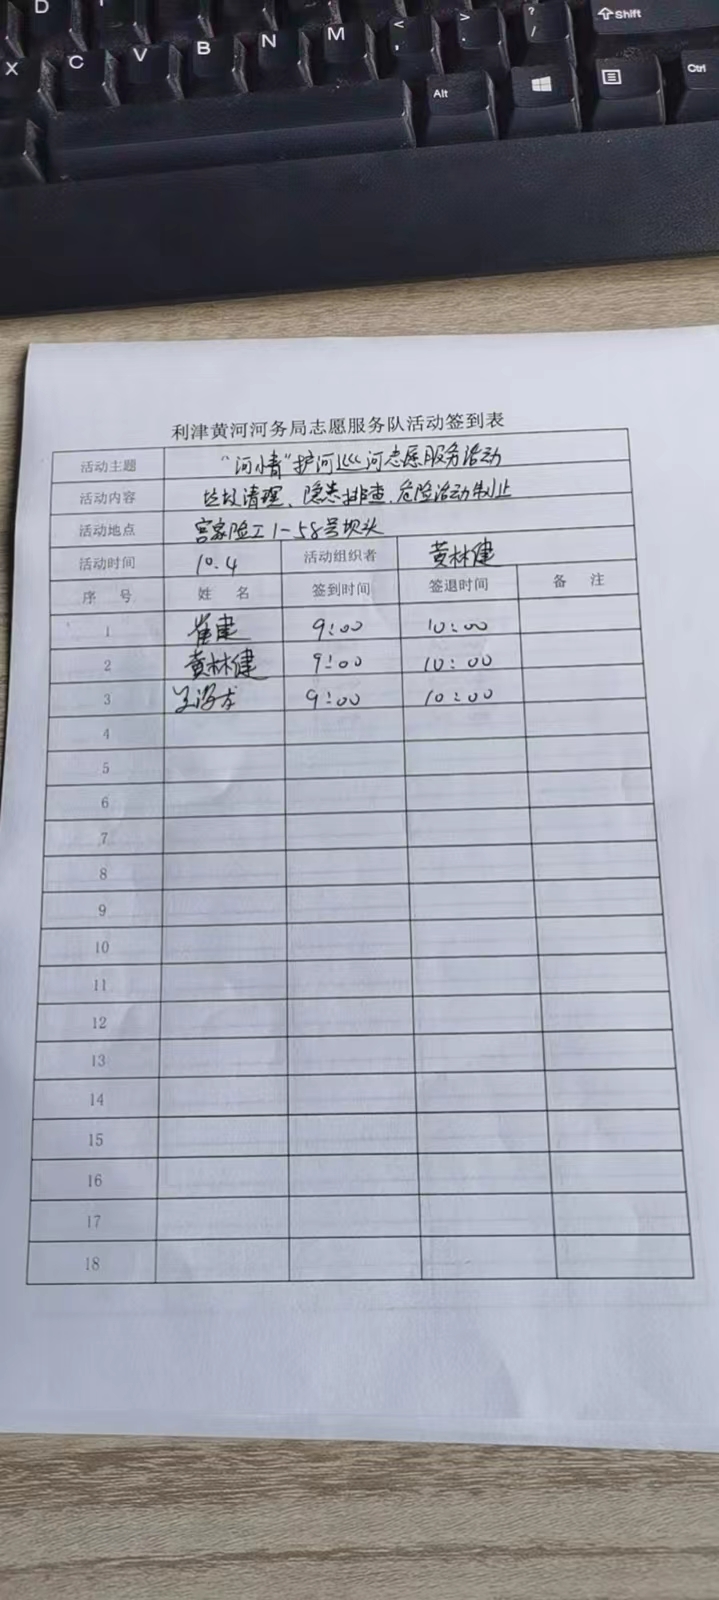 D
X C V B N M < , > . ? / Shift
Alt Ctrl
利津黄河河务局志愿服务队活动签到表
活动主题 "河小青"护河巡河志愿服务活动
活动内容 垃圾清理、隐患排查、危险活动制止
活动地点 宫家险工1-58号坝头
活动时间 10.4 活动组织者 黄林健
序 号 姓 名 签到时间 签退时间 备 注
1 崔建 9:00 10:00
2 黄林健 9:00 10:00
3 9:00 10:00
4
5
6
7
8
9
10
11
12
13
14
15
16
17
18